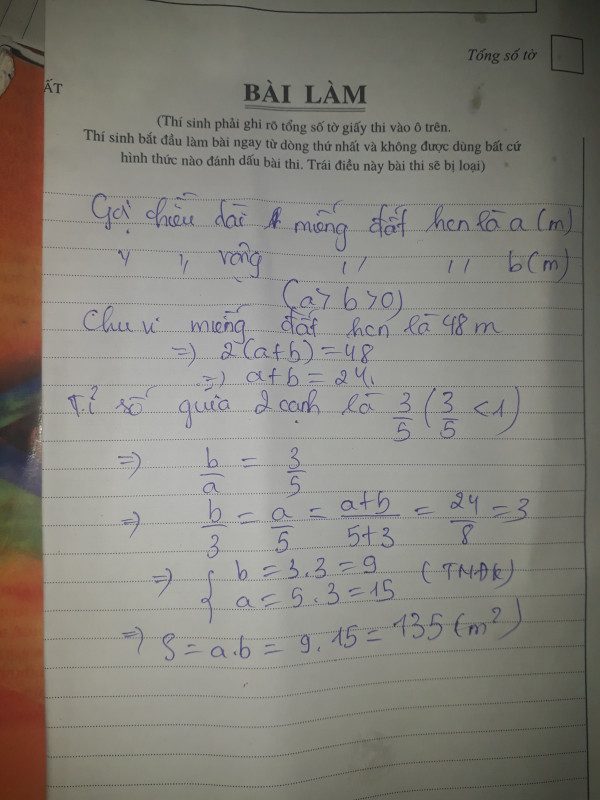 Tổng số tờ
ẤT
BÀI LÀM
(Thí sinh phải ghi rõ tổng số tờ giấy thi vào ô trên.
Thí sinh bắt đầu làm bài ngay từ dòng thứ nhất và không được dùng bất cứ
hình thức nào đánh dấu bài thi. Trái điều này bài thi sẽ bị loại)
Gọi chiều dài miếng đất hcn là a (m)
" " rộng " " b(m)
(a > b > 0)
Chu vi miếng đất hcn là 48 m
=> 2(a+b) = 48
=> a+b = 24.
Tỉ số giữa 2 cạnh là 3/5 (3/5 < 1)
=> b/a = 3/5
=> b/3 = a/5 = a+b/5+3 = 24/8 = 3
=> { b = 3.3 = 9 (TMĐK)
a = 5.3 = 15
=> S = a.b = 9.15 = 135 (m²)